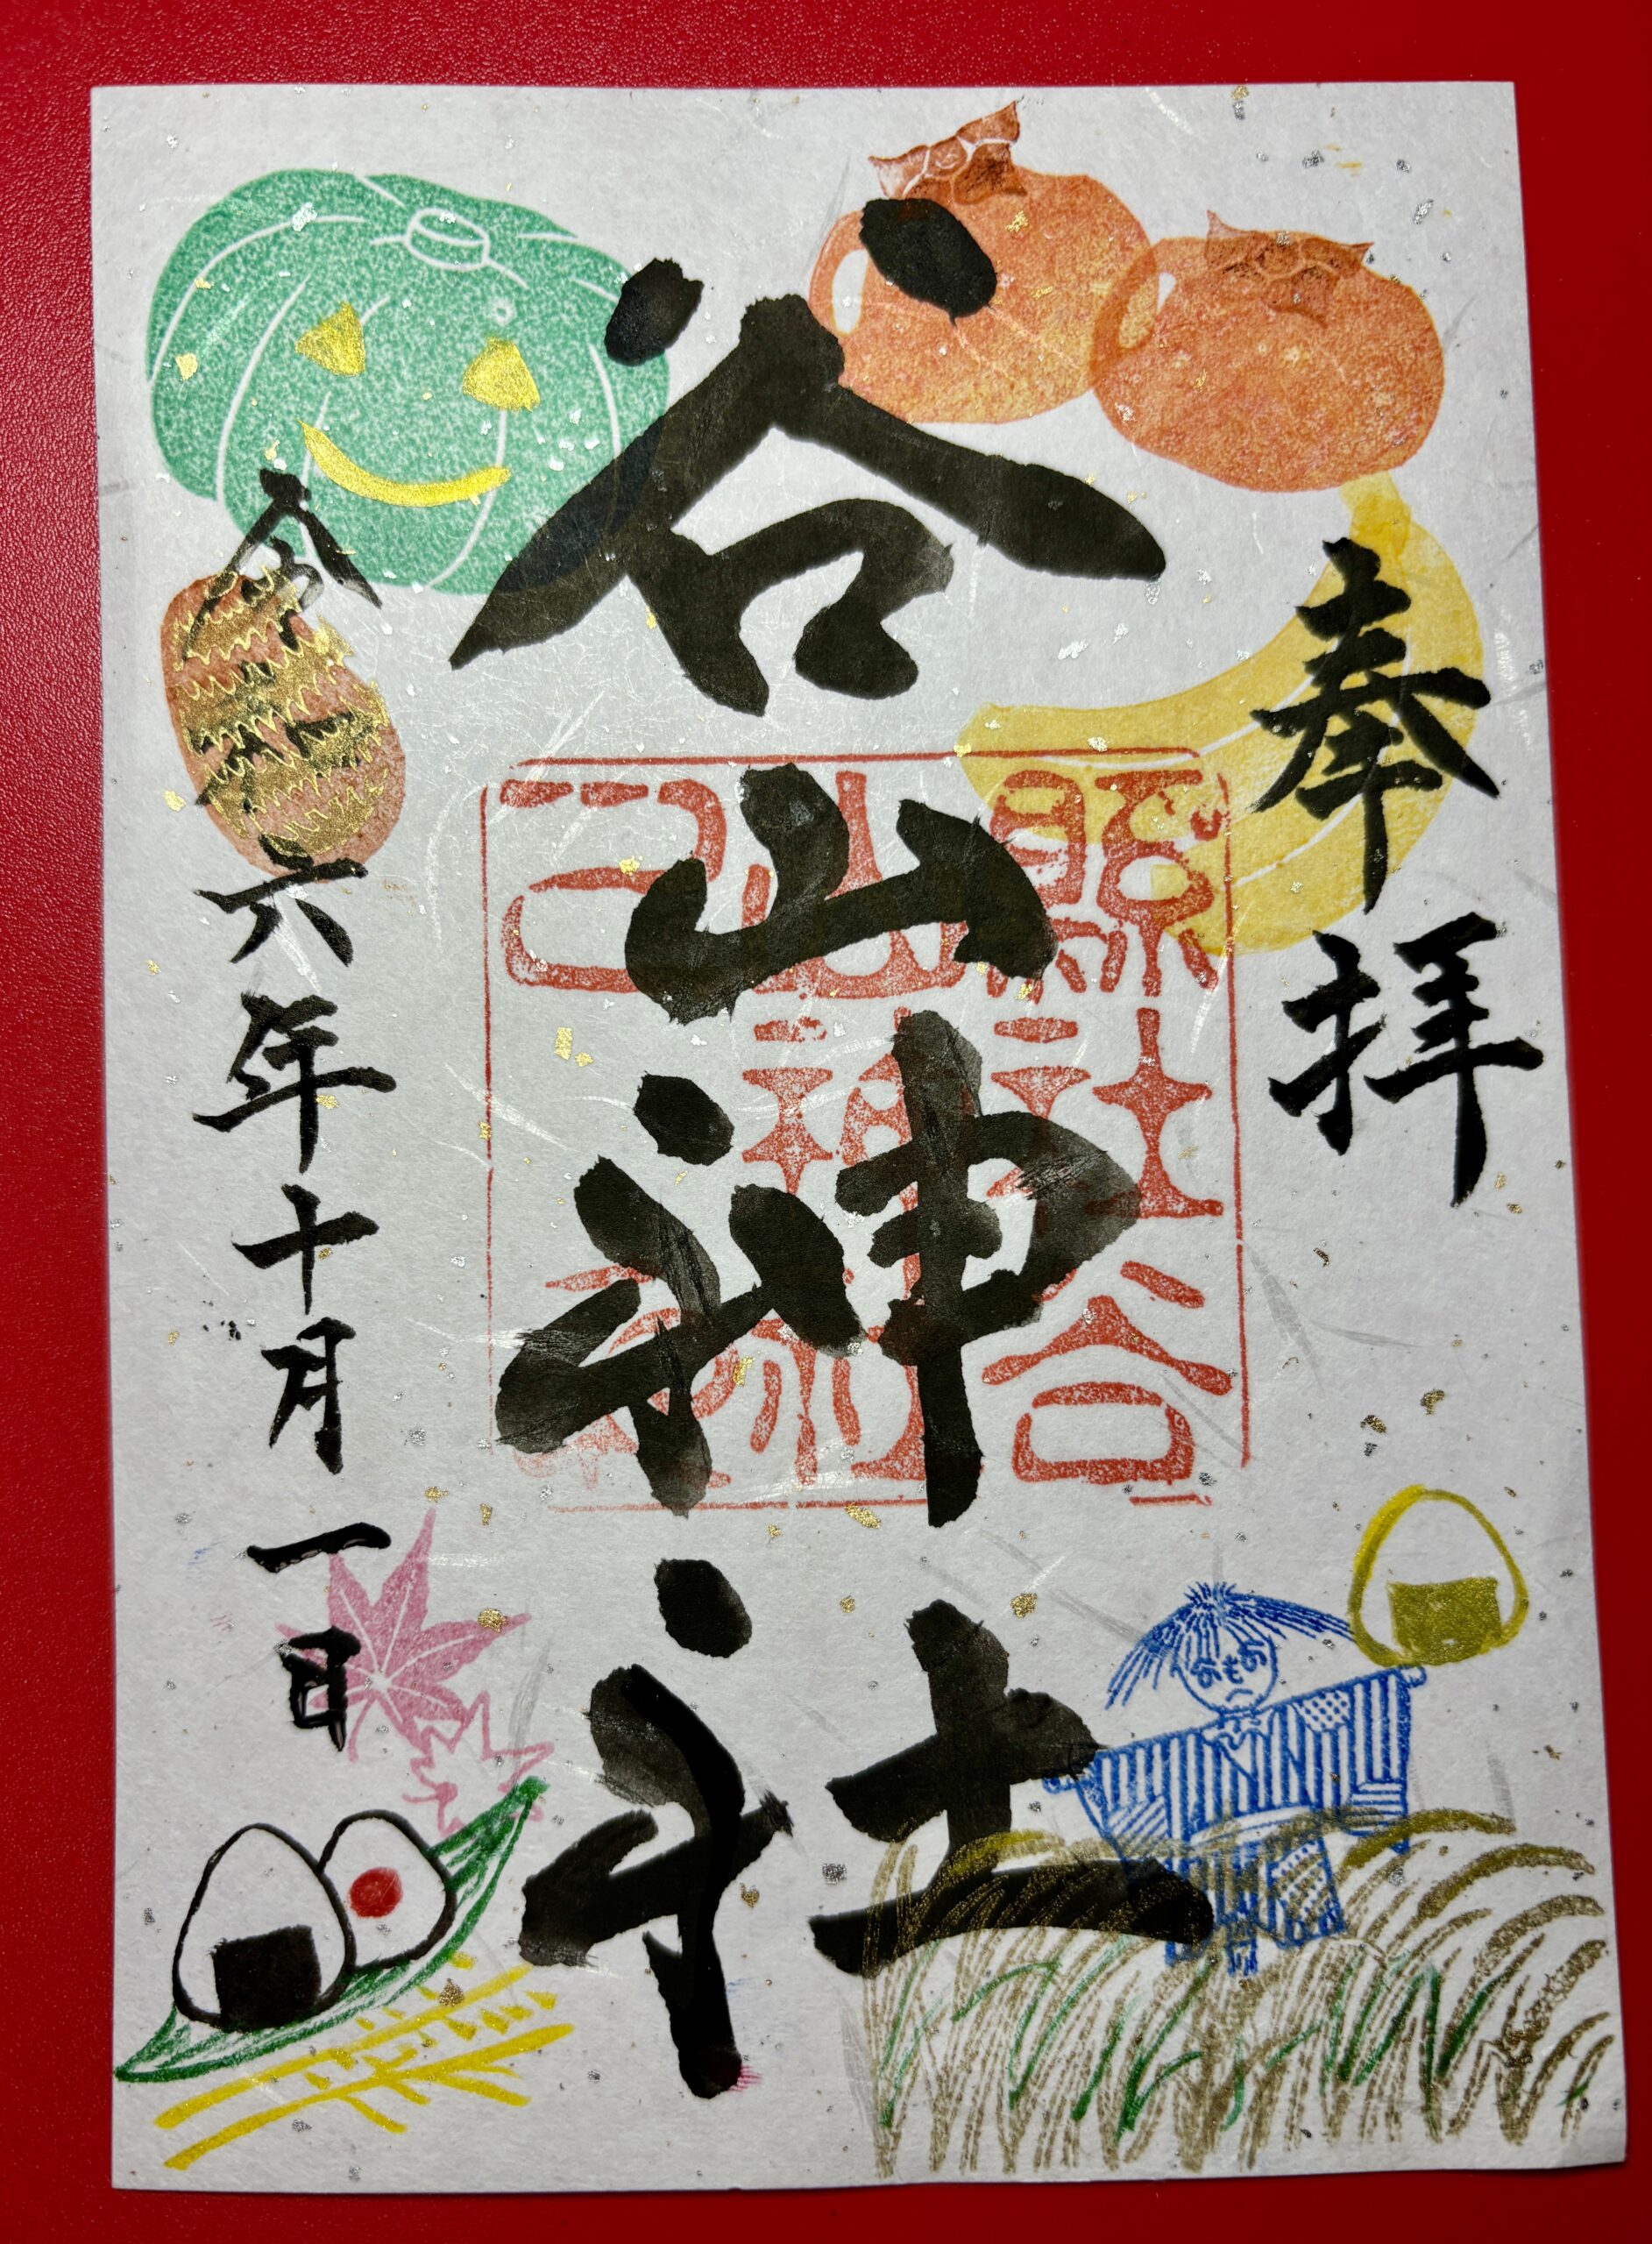 奉拝
谷山神社
縣社谷
山神社
令和六年十月一日